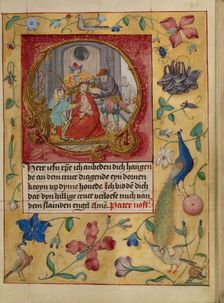 Here ihesu xpe ic anbeden dich hangen
de an dem cruce dragende eyn dornen
kroyn up dyme hovede Ich bidde dich
dat dyn hillige cruce verlose mich van
dem slainden engel Ame Pater nost